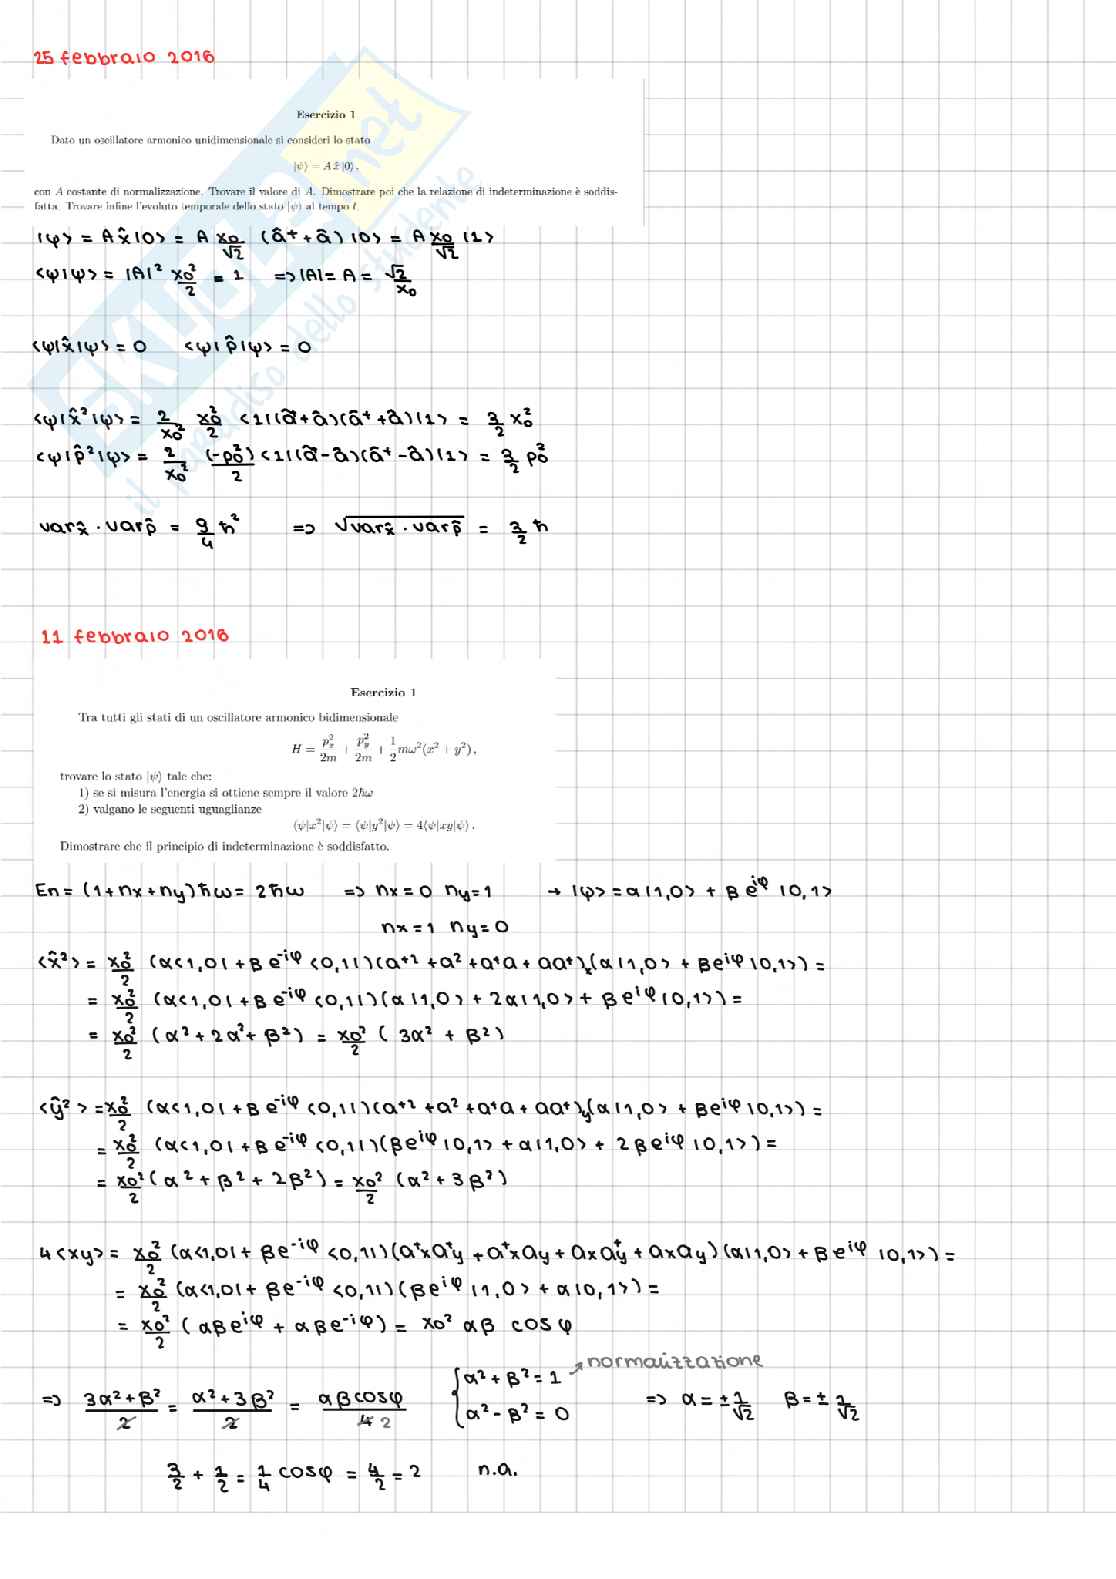 25 febbraio 2016
Esercizio 1
Dato un oscillatore armonico unidimensionale si consideri lo stato
|ψ⟩ = A x̂|0⟩ ,
con A costante di normalizzazione. Trovare il valore di A. Dimostrare poi che la relazione di indeterminazione è soddis-
fatta. Trovare infine l'evoluto temporale dello stato |ψ⟩ al tempo t.
|ψ> = A x̂ |0> = A x₀/√2 (â⁺ + â) |0> = A x₀/√2 |1>
<ψ|ψ> = |A|² x₀²/2 = 1 => |A| = A = √2/x₀
<ψ|x̂|ψ> = 0 <ψ|p̂|ψ> = 0
<ψ|x̂²|ψ> = 2/x₀² x₀²/2 <1|(â⁺+â)(â⁺+â)|1> = 3/2 x₀²
<ψ|p̂²|ψ> = 2/x₀² (-p₀²)/2 <1|(â⁺-â)(â⁺-â)|1> = 3/2 p₀²
var x̂ · var p̂ = 9/4 ħ² => √(var x̂ · var p̂) = 3/2 ħ
11 febbraio 2016
Esercizio 1
Tra tutti gli stati di un oscillatore armonico bidimensionale
H = pₓ²/2m + p_y²/2m + 1/2 mω²(x² + y²) ,
trovare lo stato |ψ⟩ tale che:
1) se si misura l'energia si ottiene sempre il valore 2ħω
2) valgano le seguenti uguaglianze
⟨ψ|x²|ψ⟩ = ⟨ψ|y²|ψ⟩ = 4⟨ψ|xy|ψ⟩ .
Dimostrare che il principio di indeterminazione è soddisfatto.
En = (1+nx+ny)ħω = 2ħω => nx=0 ny=1 → |ψ> = α|1,0> + β e^iφ |0,1>
nx=1 ny=0
<x̂²> = x₀²/2 (α<1,0| + β e^-iφ <0,1|)(a⁺² + a² + a⁺a + aa⁺)ₓ(α|1,0> + βe^iφ |0,1>) =
= x₀²/2 (α<1,0| + β e^-iφ <0,1|)(α|1,0> + 2α|1,0> + β e^iφ |0,1>) =
= x₀²/2 (α² + 2α² + β²) = x₀²/2 (3α² + β²)
<ŷ²> = x₀²/2 (α<1,0| + β e^-iφ <0,1|)(a⁺² + a² + a⁺a + aa⁺)y(α|1,0> + βe^iφ |0,1>) =
= x₀²/2 (α<1,0| + β e^-iφ <0,1|)(βe^iφ |0,1> + α|1,0> + 2βe^iφ |0,1>) =
= x₀²/2 (α² + β² + 2β²) = x₀²/2 (α² + 3β²)
4<xy> = x₀²/2 (α<1,0| + βe^-iφ <0,1|)(a⁺x a⁺y + a⁺x ay + ax a⁺y + ax ay)(α|1,0> + βe^iφ |0,1>) =
= x₀²/2 (α<1,0| + βe^-iφ <0,1|)(βe^iφ |1,0> + α|0,1>) =
= x₀²/2 (αβe^iφ + αβe^-iφ) = x₀² αβ cosφ
normalizzazione
=> (3α²+β²)/2 = (α²+3β²)/2 = αβcosφ/4 2 { α² + β² = 1 => α = ±1/√2 β = ±1/√2
α² - β² = 0
3/2 + 1/2 = 1/4 cosφ = 4/2 = 2 n.a.
SKUOLA.net
il paradiso dello studente